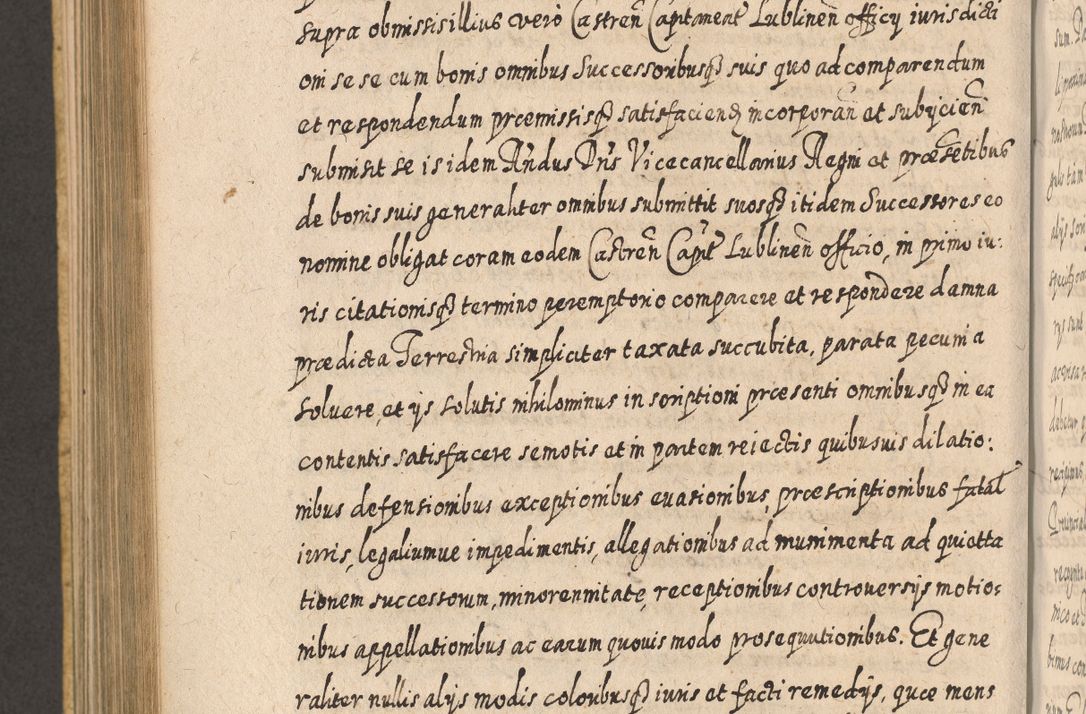 supra obmissis illius vero Castren̄ Capitaneat̄ Lublinen̄ officy iurisdicti
oni se se cum bonis omnibus Successoribusq̄ suis quo ad comparendum
et respondendum præmissisq̄ satisfaciend̄ incorporan̄ et subÿcien̄
submisit se is idem Rn̄dus Dn̄s Vicecancellarius Regni et præsetibus
de bonis suis generaliter omnibus submittit suosq̄ itidem Successores eo
nomine obligat coram eodem Castren̄ Capit̄ Lublinen̄ officio, in primo iu:
ris citationisq̄ termino peremptorio comparere et respondere damna
prædicta Terrestria simpliciter taxata succubita, parata pecunia
soluere, et ÿs solutis nihilominus inscriptioni præsenti omnibusq̄ in ea
contentis satisfacere semotis et in partem reiectis quibusuis dilatio:
nibus defensionibus exceptionibus euasionibus, præscriptionibus fatal̄
iuris, legaliumue impedimentis, allegationibus ad munimenta ad quietta
tionem successorum, minorennitate, receptionibus controuersÿs motio:
nibus appellationibus ac earum quouis modo prosequutionibus. Et gene
raliter nullis alÿs modis coloribusq̄ iuris et facti remedÿs, quæ mens